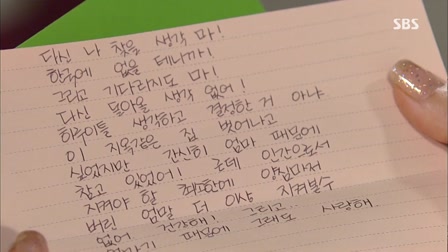 SBS
다신 나 찾을 생각 마!
한국에 없을 테니까!
그리고 기다리지도 마!
다신 돌아올 생각 없어!
하루이틀 생각하고 결정한 거 아냐
이 지옥같은 집 벗어나고
싶었지만 간신히 엄마 때문에
참고 있었어! 근데 인간으로서
지켜야 할 최소한에 양심마저
버린 엄말 더 이상 지켜볼수
없어 건강해! 그리고
때문에 그래도 사랑해.